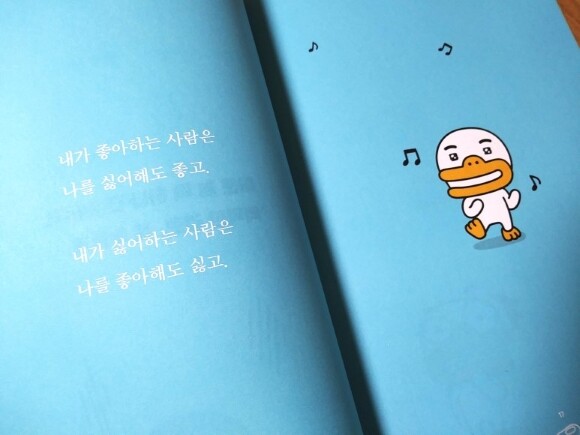 내가 좋아하는 사람은
나를 싫어해도 좋고.
내가 싫어하는 사람은
나를 좋아해도 싫고.